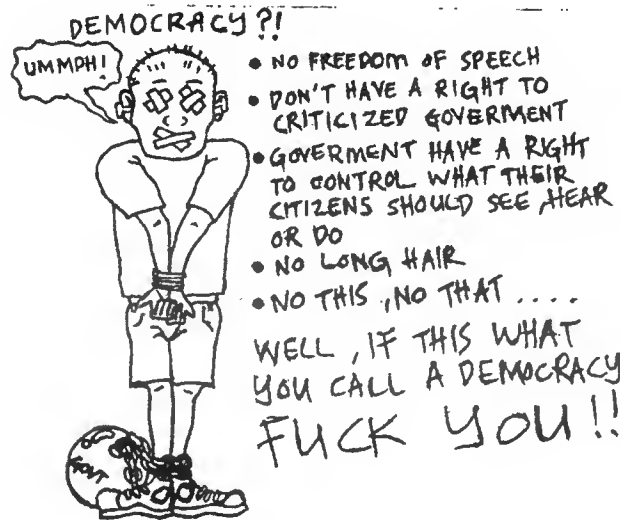 DEMOCRACY?!
UMMPH!
• NO FREEDOM OF SPEECH
• DON'T HAVE A RIGHT TO
CRITICIZED GOVERMENT
• GOVERMENT HAVE A RIGHT
TO CONTROL WHAT THEIR
CITIZENS SHOULD SEE, HEAR
OR DO
• NO LONG HAIR
• NO THIS, NO THAT ....
WELL, IF THIS WHAT
YOU CALL A DEMOCRACY
FUCK YOU!!
GOVT